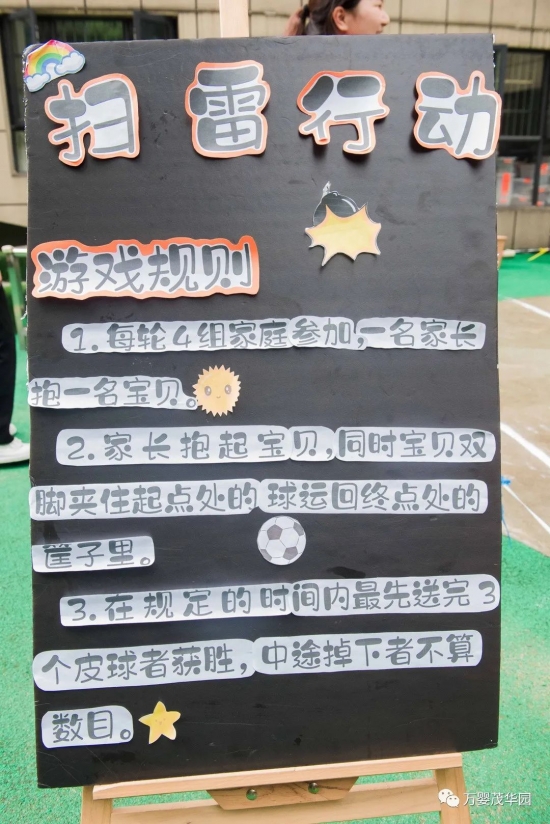 扫雷行动
游戏规则
1.每轮4组家庭参加,一名家长
抱一名宝贝。
2.家长抱起宝贝,同时宝贝双
脚夹住起点处的球运回终点处的
筐子里。
3.在规定的时间内最先送完3
个皮球者获胜,中途掉下者不算
数目。
万婴茂华园